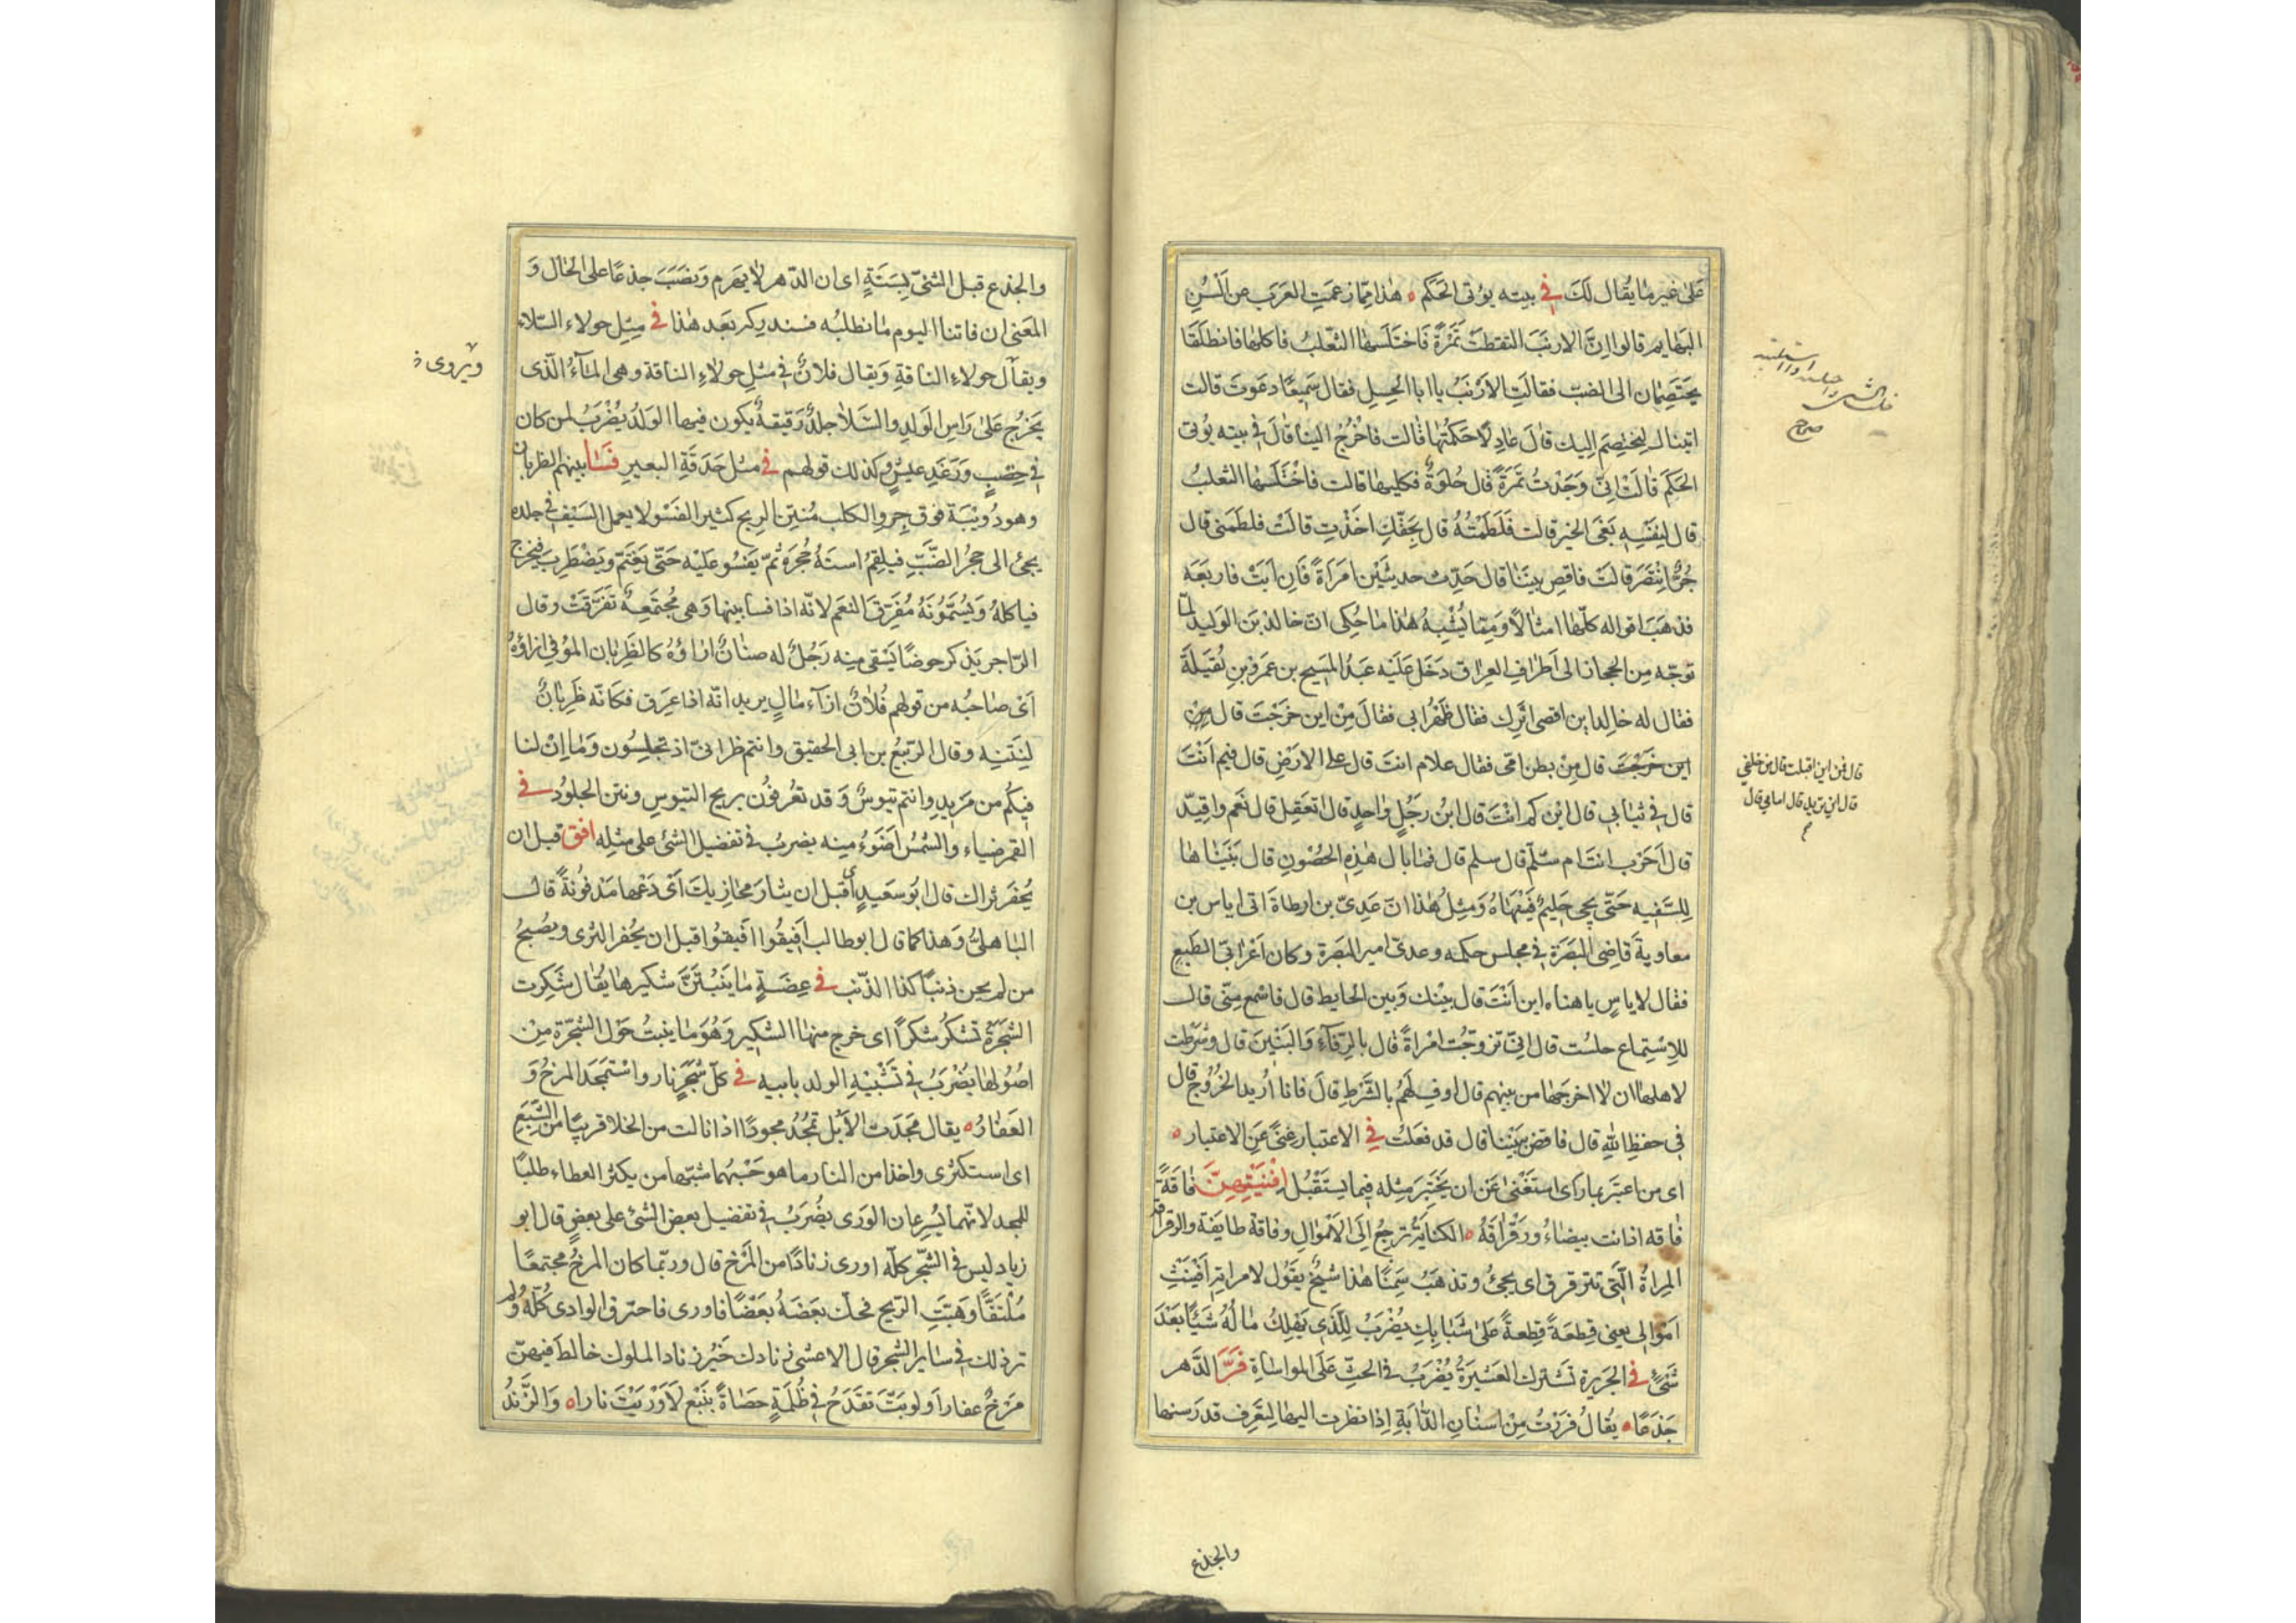 على غير ما يقال لك في بيته يؤتى الحكم ه هذا مما زعمت العرب عن ألسن
البهايم قالوا إن الارنب التقطت تمرة فاختلسها الثعلب فاكلها فانطلقا
يختصمان الى الضب فقالت الأرنب يا ابا الحسل فقال سميعا دعوت قالت
اتيناك لنختصم إليك قال عادلا حكمتما قالت فاخرج الينا قال في بيته يؤتى
الحكم قالت اني وجدت تمرة قال حلوة فكليها قالت فاختلسها الثعلب
قال لنفسه بغى الخير قالت فلطمته قال بحقك اخذت قالت فلطمنى قال
حر انتصر قالت فاقض بيننا قال حدث حديثين امراة فان ابت فاربعة
فذهبت اقواله كلها امثالا ومما يشبه هذا ما حكى ان خالد بن الوليد لما
توجه من الحجاز الى اطراف العراق دخل عليه عبد المسيح بن عمرو بن نقيلة
فقال له خالد اين اقصى اثرك فقال ظهر ابى فقال من اين خرجت قال من
اين خرجت قال من بطن امى فقال علام انت قال على الارض قال فيم انت
قال في ثيابي قال ابن كم انت قال ابن رجل واحد قال اتعقل قال نعم واقيد
قال احرب انت ام سلم قال سلم قال فما بال هذه الحصون قال بنيناها
للسفيه حتى يجي حليم فينهاه ومثل هذا ان عدى بن ارطاة اتى اياس بن
معاوية قاضى البصرة في مجلس حكمه وعدى امير البصرة وكان اعرابى الطبع
فقال لاياس يا هناه اين انت قال بينك وبين الحايط قال فاسمع منى قال
للإستماع جلست قال انى تزوجت امراة قال بالرفآء والبنين قال وشرطت
لاهلها ان لا اخرجها من بينهم قال اوف لهم بالشرط قال فانا اريد الخروج قال
في حفظ الله قال فاقض بيننا قال قد فعلت في الاعتبار غنى عن الاختبار ه
اى من اعتبر بما راى استغنى عن ان يختبر مثله فيما يستقبل افنيتهن فاقة
فاقه اذ انت بيضاء ورقراقه ه الكناية ترجع إلى الاموال وفاقة طايفة والرقراقة
المراة التى تترقرق اى يجئ وتذهب سمنا هذا شيخ يقول لامراته افنيت
اموالى يعنى قطعة قطعة على شبابك يضرب للذى يهلك ماله شيئا بعد
شئ في الجريرة تشترك العشيرة يضرب في الحث على المواساة فر الدهر
جذعا ه يقال فررت من اسنان الدابة إذا نظرت اليها لتعرف قدر سنها
صراح
قال فمن اين اقبلت قال من خلفي
قال اين تريد قال امامي قال
والجذع
والجذع قبل الثنى بسنة اى ان الدهر لا يهرم ونصب جذعا على الحال و
المعنى ان فاتنا اليوم ما نطلبه فسندركه بعد هذا في مثل حولاء السلاء
ويقال حولاء الناقة ويقال فلان في مثل حولاء الناقة وهى المآء الذى
يخرج على راس الولد والسلا جلدة رقيقة يكون فيها الولد يضرب لمن كان
في خصب ورغد عيش وكذلك قولهم في مثل حدقة البعير فسا بينهم الظربان
وهو دويبة فوق جرو الكلب منتن الريح كثير الفسو لا يعمل السيف في جلده
يجئ الى حجر الضب فيلقم استه حجره ثم يفسو عليه حتى يغتم ويضطرب فيخرج
فياكله ويسمونه مفرق النعم لانه اذا فسا بينها وهى مجتمعة تفرقت وقال
الراجز يذكر حوضا يستقى منه رجل له صنان ازاؤه كالظربان الموفى ازاؤه
اى صاحبه من قولهم فلان ازآء مال يريد انه اذا عرق فكانه ظربان
لنتنه وقال الربيع بن ابى الحقيق وانتم ظرابى اذ تجلسون وما ان لنا
فيكم من مزيد وانتم تيوس وقد تعرفون بريح التيوس ونتن الجلود في
القمر ضياء والشمس اضوء منه يضرب في تفضيل الشئ على مثله افق قبل ان
يحفر ثراك قال ابو سعيد أى قبل ان يثار مخازيك أى دعها مدفونة قال
الباهلى وهذا كما قال ابو طالب افيقوا افيقوا قبل ان يحفر الثرى ويصبح
من لم يجن ذنبا كذا الذنب في عضة ما ينبتن شكيرها يقال شكرت
الشجرة تشكر شكرا اى خرج منها الشكير وهو ما ينبت حول الشجرة من
اصولها يضرب في تشبيه الولد بابيه في كل شجر نار واستمجد المرخ و
العفار ه يقال مجدت الأبل تمجد مجودا اذا نالت من الخلا قريبا من الشبع
اى استكثرى واخذا من النار ما هو حسبهما شبها من يكثر العطاء طلبا
للمجد لانهما يسرعان الورى يضرب في تفضيل بعض الشئ على بعض قال ابو
زياد ليس في الشجر كله اورى زنادا من المرخ قال وربما كان المرخ مجتمعا
ملتفا وهبت الريح فحك بعضه بعضا فاورى فاحترق الوادى كله ولم
تر ذلك في ساير الشجر قال الاعشى زنادك خير زناد الملوك خالط فيهن
مرخ عفارا ولو بت تقدح في ظلمة حصاة بنبع لاوريت نارا ه والزند
ويروى